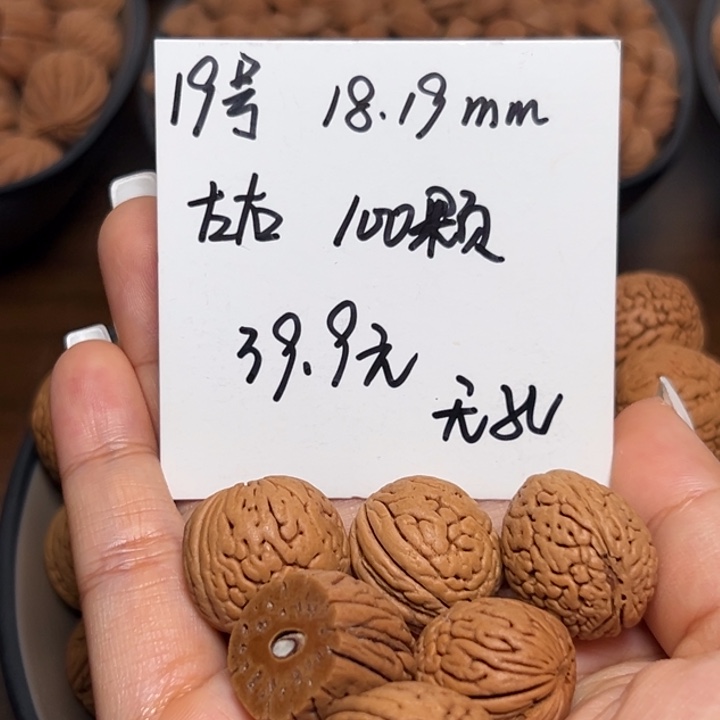 19号 18.19mm
左右 100颗
39.9元
无孔